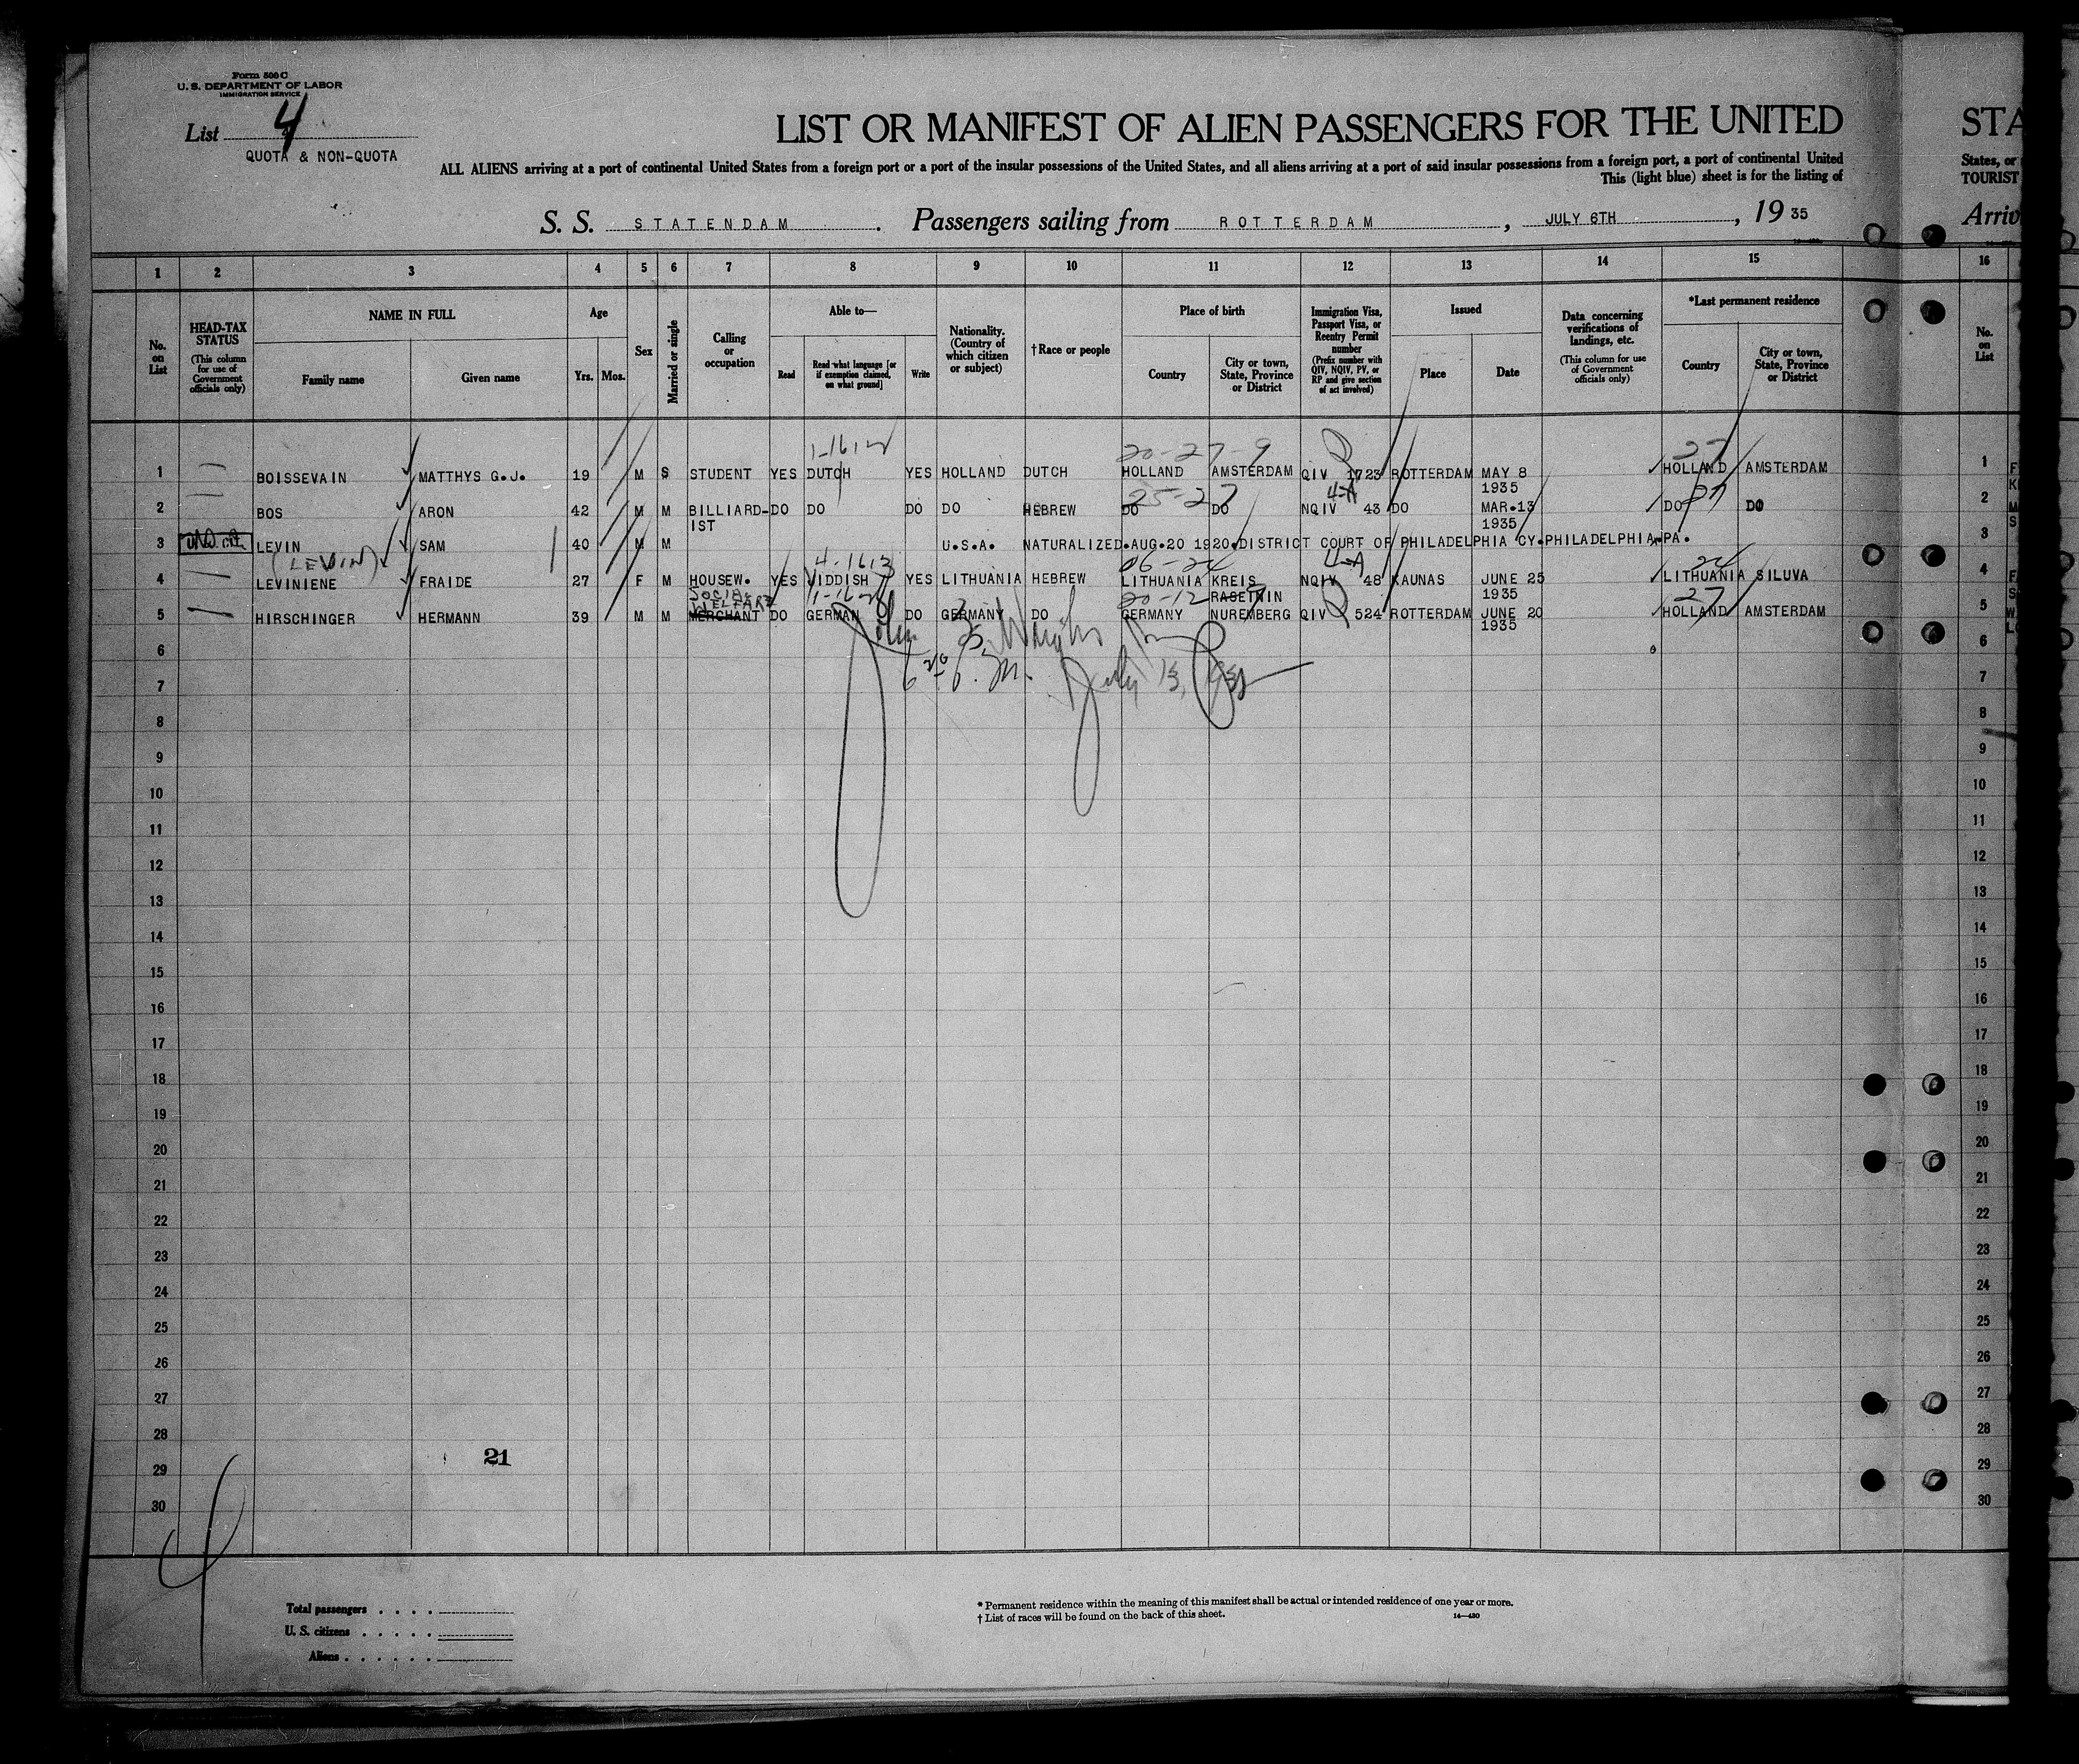 Form 500 C
U. S. DEPARTMENT OF LABOR
IMMIGRATION SERVICE
List 4
QUOTA & NON-QUOTA
LIST OR MANIFEST OF ALIEN PASSENGERS FOR THE UNITED
STA
ALL ALIENS arriving at a port of continental United States from a foreign port or a port of the insular possessions of the United States, and all aliens arriving at a port of said insular possessions from a foreign port, a port of continental United
States, or
This (light blue) sheet is for the listing of
TOURIST
S. S. STATENDAM. Passengers sailing from ROTTERDAM, JULY 6TH, 19 35
Arriv
1 2 3 4 5 6 7 8 9 10 11 12 13 14 15 16
No. on List
HEAD-TAX STATUS (This column for use of Government officials only)
NAME IN FULL
Family name
Given name
Age
Yrs. Mos.
Sex
Married or single
Calling or occupation
Able to—
Read
Read what language [or if exemption claimed, on what ground]
Write
Nationality. (Country of which citizen or subject)
†Race or people
Place of birth
Country
City or town, State, Province or District
Immigration Visa, Passport Visa, or Reentry Permit number (Prefix number with QIV, NQIV, PV, or RP and give section of act involved)
Issued
Place
Date
Data concerning verifications of landings, etc. (This column for use of Government officials only)
*Last permanent residence
Country
City or town, State, Province or District
No. on List
20-27-9 27
1 BOISSEVAIN MATTHYS G.J. 19 M S STUDENT YES DUTCH YES HOLLAND DUTCH HOLLAND AMSTERDAM QIV 1723 ROTTERDAM MAY 8 1935 HOLLAND AMSTERDAM 1
25-27 4-A 27
2 BOS ARON 42 M M BILLIARD-IST DO DO DO DO HEBREW DO DO NQIV 43 DO MAR.13 1935 DO DO 2
3 LEVIN SAM 40 M M U.S.A. NATURALIZED.AUG.20 1920.DISTRICT COURT OF PHILADELPHIA CY.PHILADELPHIA.PA. 3
(LEVIN) 4-1613 06-24 4-A 24
4 LEVINIENE FRAIDE 27 F M HOUSEW. YES YIDDISH YES LITHUANIA HEBREW LITHUANIA KREIS RASEININ NQIV 48 KAUNAS JUNE 25 1935 LITHUANIA SILUVA 4
SOCIAL WELFARE 20-12 27
5 HIRSCHINGER HERMANN 39 M M MERCHANT DO GERMAN DO GERMANY DO GERMANY NUREMBERG QIV 524 ROTTERDAM JUNE 20 1935 HOLLAND AMSTERDAM 5
6 6
P. M. July 13, 1935
7 7
8 8
9 9
10 10
11 11
12 12
13 13
14 14
15 15
16 16
17 17
18 18
19 19
20 20
21 21
22 22
23 23
24 24
25 25
26 26
27 27
28 28
21
29 29
30 30
Total passengers . . . .
U. S. citizens . . . . .
Aliens . . . . . .
* Permanent residence within the meaning of this manifest shall be actual or intended residence of one year or more.
† List of races will be found on the back of this sheet. 14—430